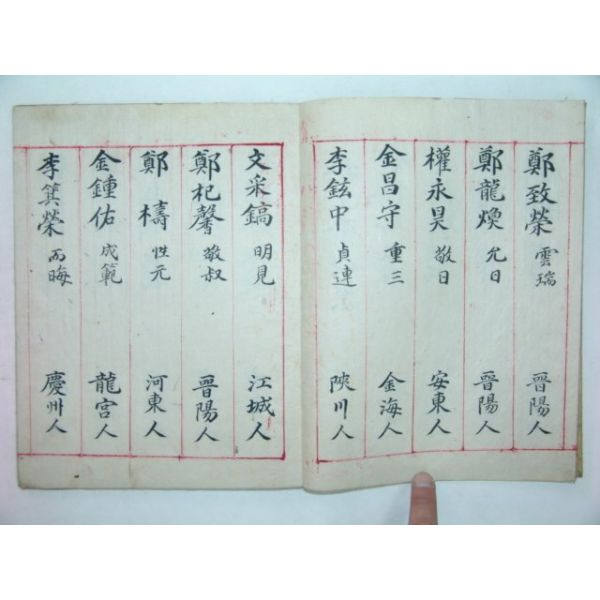 鄭致榮 雲瑞 晋陽人
鄭龍煥 允日 晋陽人
權永昊 敬日 安東人
金昌守 重三 金海人
李鉉中 貞連 陜川人
文采鎬 明見 江城人
鄭杞馨 敬叔 晋陽人
鄭檮 性元 河東人
金鍾佑 成範 龍宮人
李箕榮 而晦 慶州人